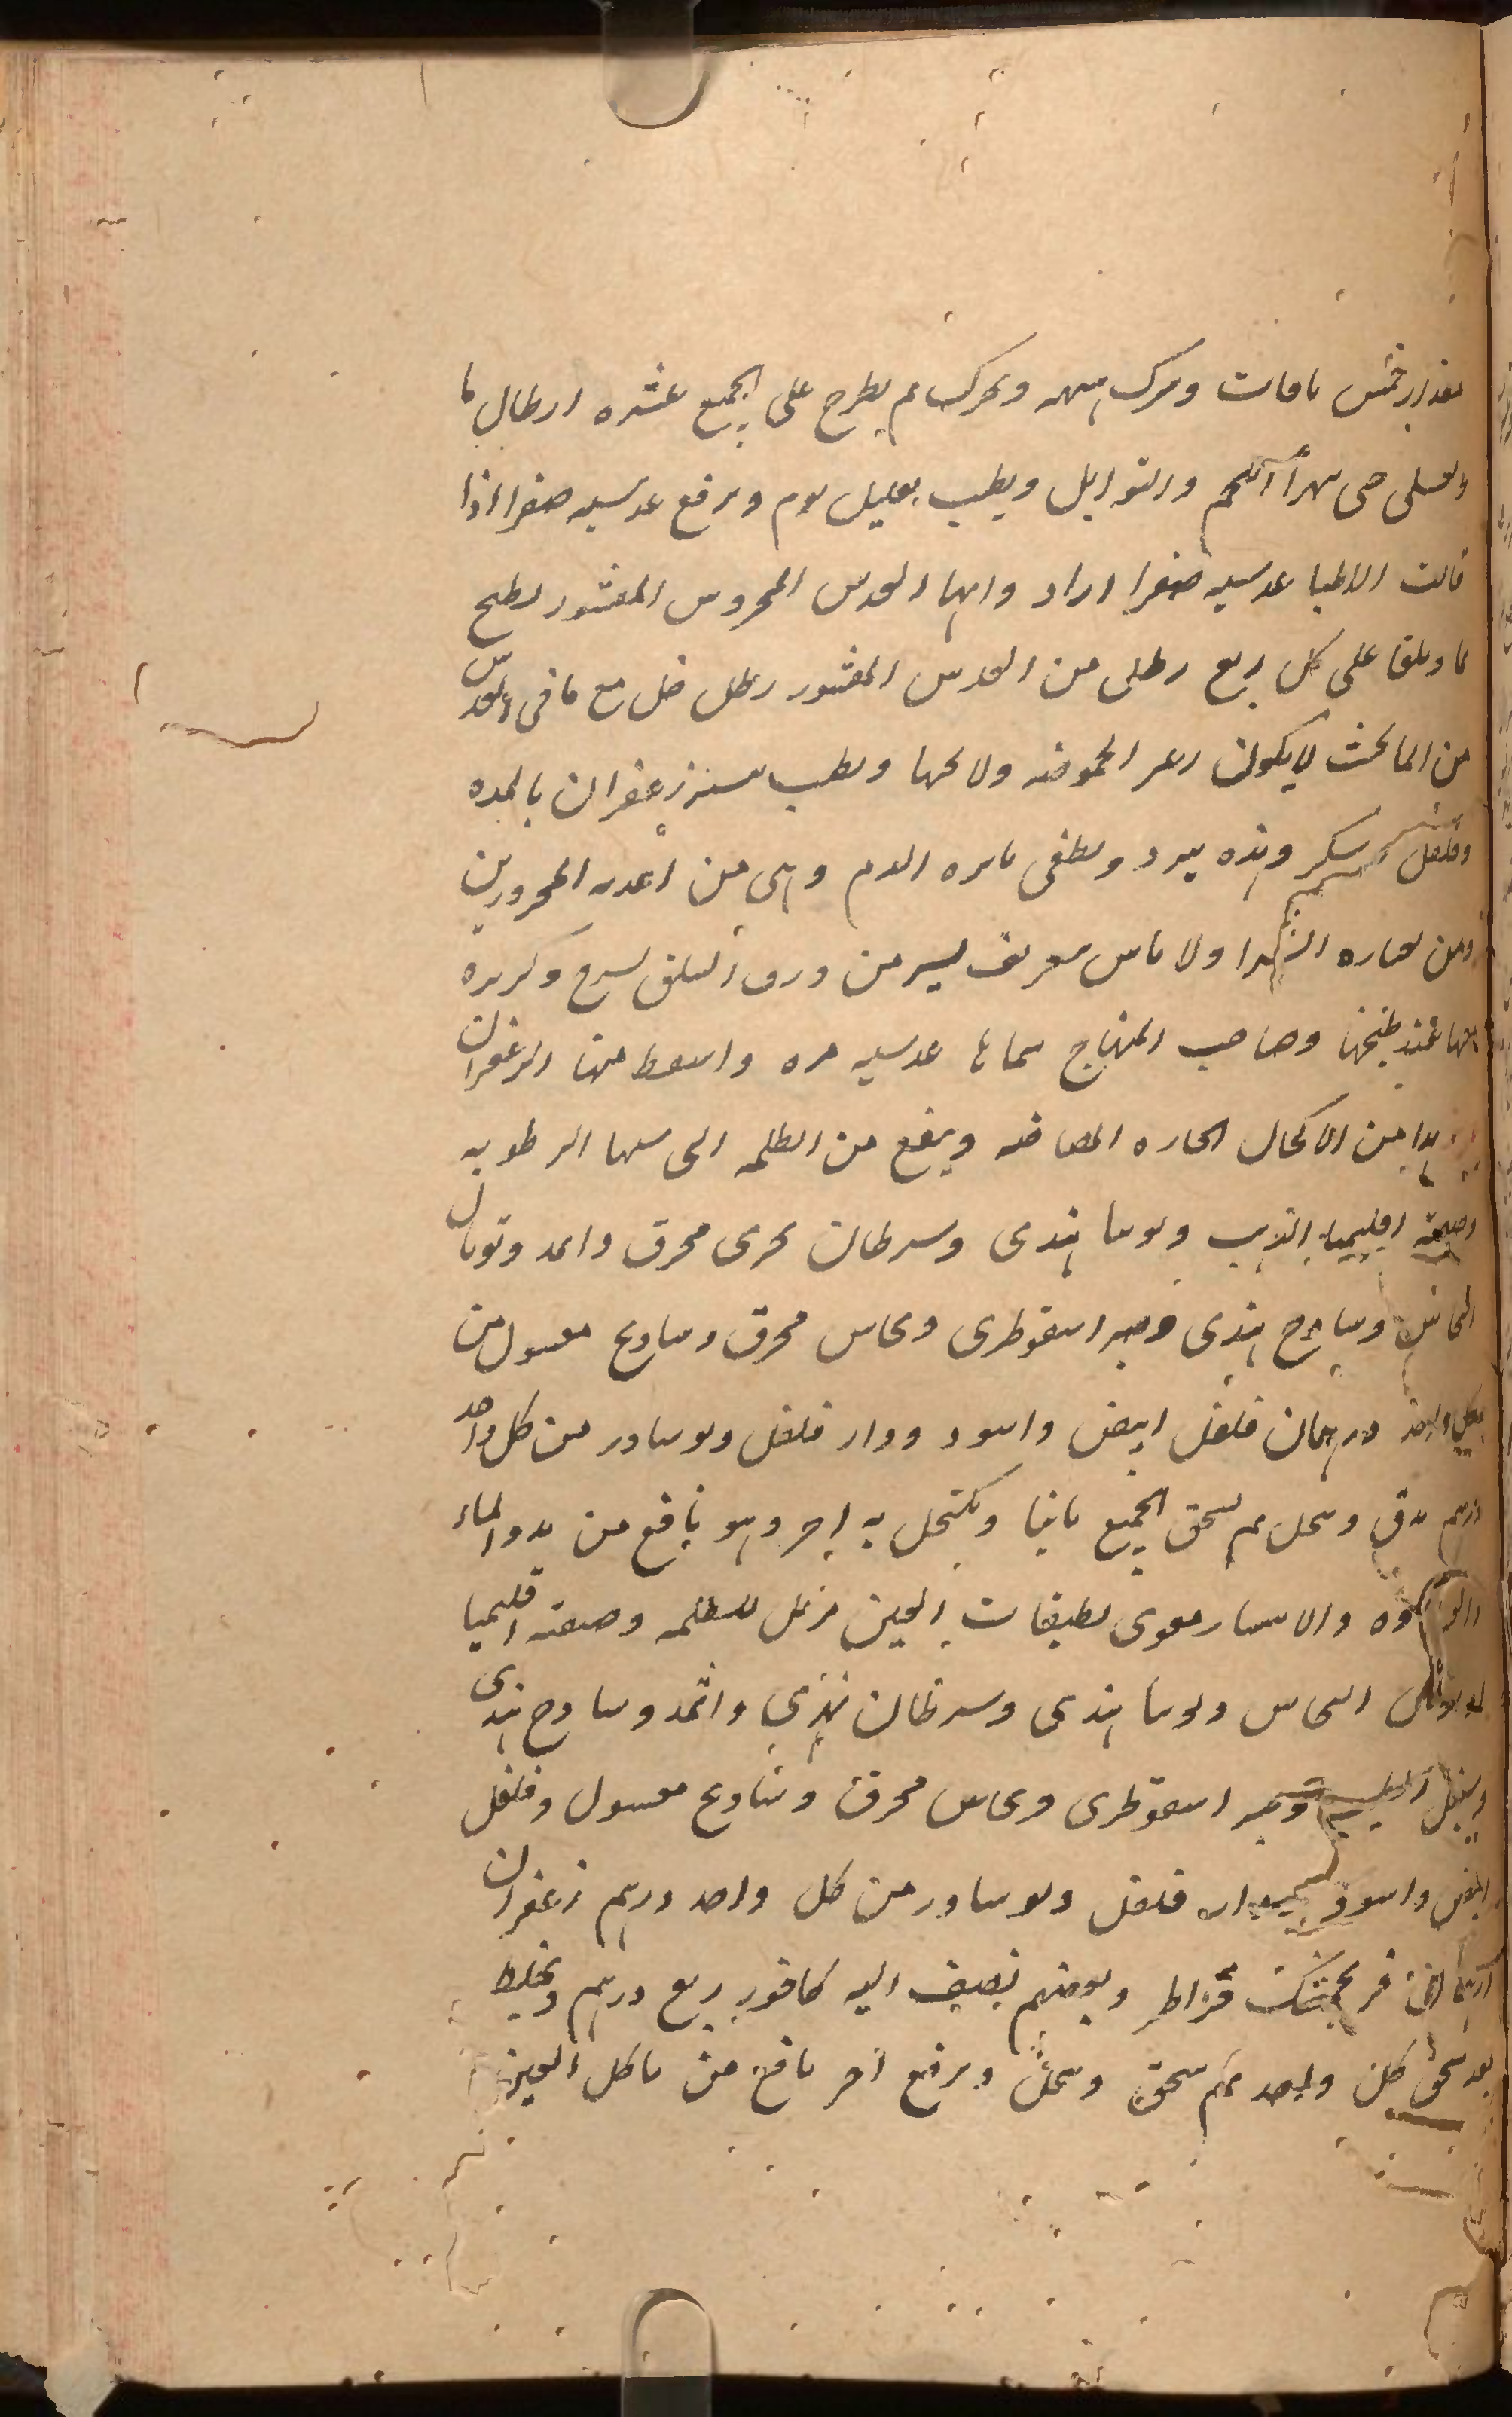 مقدار خمس باقات ويترك هنيهه ويحرك ثم يطرح على الجميع عشره ارطال ما
ويغلى حتى يتهرأ اللحم والتوابل ويطيب بقليل ثوم ويرفع عدسيه صفرا اذا
قالت الاطبا عدسيه صفرا اراد وابها العدس المجروس المقشور يطبخ
بما ويلقا على كل ربع رطل من العدس المقشور رطل خل مع ما فى العدس
من الما بحيث لا يكون ظاهر الحموضه ولا تحها ويطيب بيسير زعفران بالمده
وفلفل وسكر وهذه تبرد وتطفى نايره الدم وهى من اغديه المحرورين
ومن بعاره الزهرا ولا باس بتعريف يسير من ورق السلق يسرع وكزبره
معها عند طبخها وصاحب المنهاج سماها عدسيه مره واسقط منها الزعفران
هدا من الاكحال الحاره القابضه وينفع من الظلمه التى سببها الرطوبه
وصفته اقليميا الذهب وتوتيا هندى وسرطان بحرى محرق واثمد وتوبال
النحاس وسادج هندى وصبر اسقوطرى ونحاس محرق وشادنج مغسول من
كل واحد درهمان فلفل ابيض واسود ودار فلفل ونوشادر من كل واحد
درهم يدق وينخل ثم يسحق الجميع ثانيا ويكتحل به اخر وهو نافع من بدو الماء
والغشاوه والانتشار مقوى لطبقات العين مزيل للظلمه وصفته اقليميا
وتوبال النحاس وتوتيا هندى وسرطان نهرى واثمد وسادج هندى
وسنبل الطيب وصبر اسقوطرى ونحاس محرق وشادنج مغسول وفلفل
ابيض واسود ودار فلفل ونوشادر من كل واحد درهم زعفران
درهمان فرنجمشك قيراط وبعضهم يضيف اليه كافور ربع درهم ويخلط
بعد سحق كل واحد ثم يسحق وينخل ويرفع اخر نافع من تاكل العين